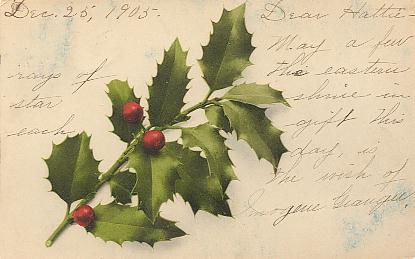 Dec. 25, 1905.
Dear Hattie
May a few
rays of
the eastern
star
shine in
each
gift this
day, is
the wish of
Imogene